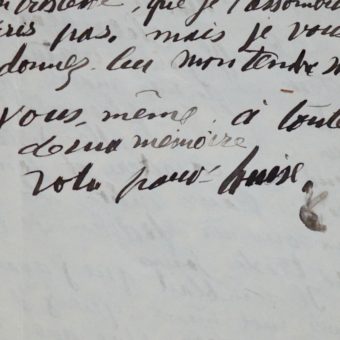 tristesse, que je l'assombri
pas, mais je vous
donnez lui mon tendre
Vous, même, à toute
mémoire
votre pauvre Louise